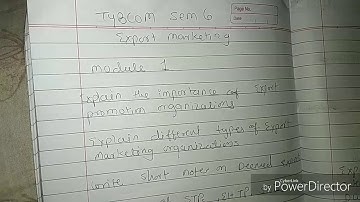 Page No.
Date
TYBCOM SEM 6
Export marketing
module 1
Explain the importance of Export
promotion organizations
Explain different types of Export
marketing organizations
write short notes on Deemed export
STP
by PowerDirector